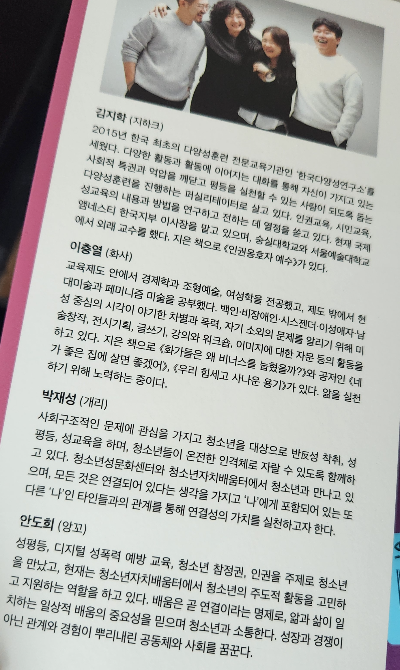 김지학 (지하크)
2015년 한국 최초의 다양성훈련 전문교육기관인 '한국다양성연구소'를
세웠다. 다양한 활동과 활동에 이어지는 대화를 통해 자신이 가지고 있는
사회적 특권과 억압을 깨닫고 평등을 실천할 수 있는 사람이 되도록 돕는
다양성훈련을 진행하는 퍼실리테이터로 살고 있다. 인권교육, 시민교육,
성교육의 내용과 방법을 연구하고 전하는 데 열정을 쏟고 있다. 현재 국제
앰네스티 한국지부 이사장을 맡고 있으며, 숭실대학교와 서울예술대학교
에서 외래 교수를 했다. 지은 책으로 《인권옹호자 예수》가 있다.
이충열 (화사)
교육제도 안에서 경제학과 조형예술, 여성학을 전공했고, 제도 밖에서 현
대미술과 페미니즘 미술을 공부했다. 백인·비장애인·시스젠더·이성애자·남
성 중심의 시각이 야기한 차별과 폭력, 자기 소외의 문제를 알리기 위해 미
술창작, 전시기획, 글쓰기, 강의와 워크숍, 이미지에 대한 자문 등의 활동을
하고 있다. 지은 책으로 《화가들은 왜 비너스를 눕혔을까?》와 공저인 《네
가 좋은 집에 살면 좋겠어》, 《우리 힘세고 사나운 용기》가 있다. 앎을 실천
하기 위해 노력하는 중이다.
박재성 (개리)
사회구조적인 문제에 관심을 가지고 청소년을 대상으로 반反성 착취, 성
평등, 성교육을 하며, 청소년들이 온전한 인격체로 자랄 수 있도록 함께하
고 있다. 청소년성문화센터와 청소년자치배움터에서 청소년과 만나고 있
으며, 모든 것은 연결되어 있다는 생각을 가지고 '나'에게 포함되어 있는 또
다른 '나'인 타인들과의 관계를 통해 연결성의 가치를 실천하고자 한다.
안도희 (앙꼬)
성평등, 디지털 성폭력 예방 교육, 청소년 참정권, 인권을 주제로 청소년
을 만났고, 현재는 청소년자치배움터에서 청소년의 주도적 활동을 고민하
고 지원하는 역할을 하고 있다. 배움은 곧 연결이라는 명제로, 앎과 삶이 일
치하는 일상적 배움의 중요성을 믿으며 청소년과 소통한다. 성장과 경쟁이
아닌 관계와 경험이 뿌리내린 공동체와 사회를 꿈꾼다.